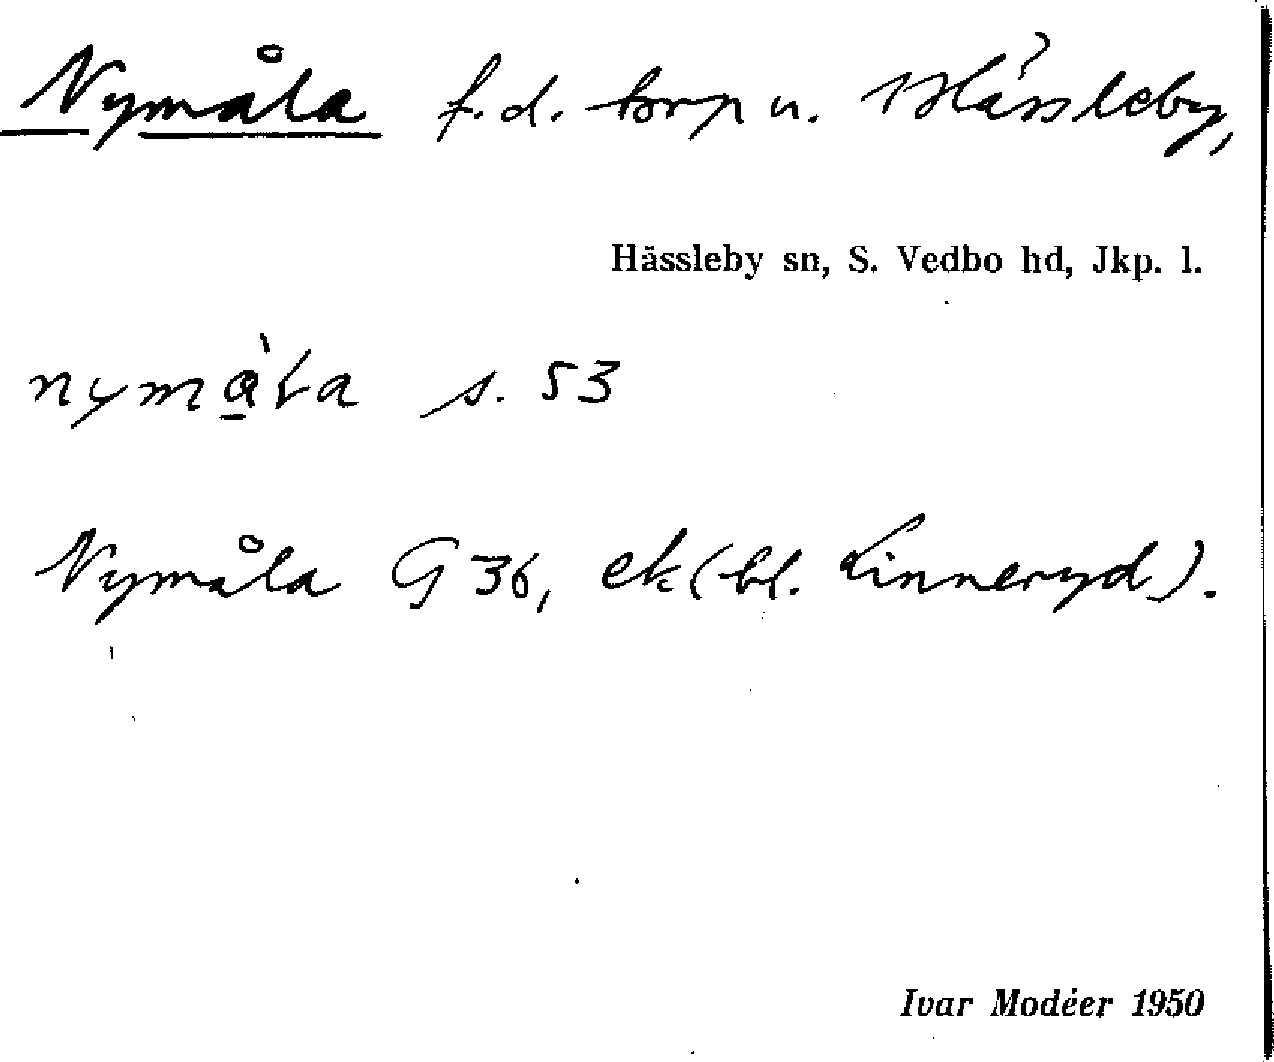 Nymåla f.d. torp u. Hässleby,
Hässleby sn, S. Vedbo hd, Jkp. l.
s. 53
Nymåla G 36, ek (bl. Linneryd).
Ivar Modéer 1950